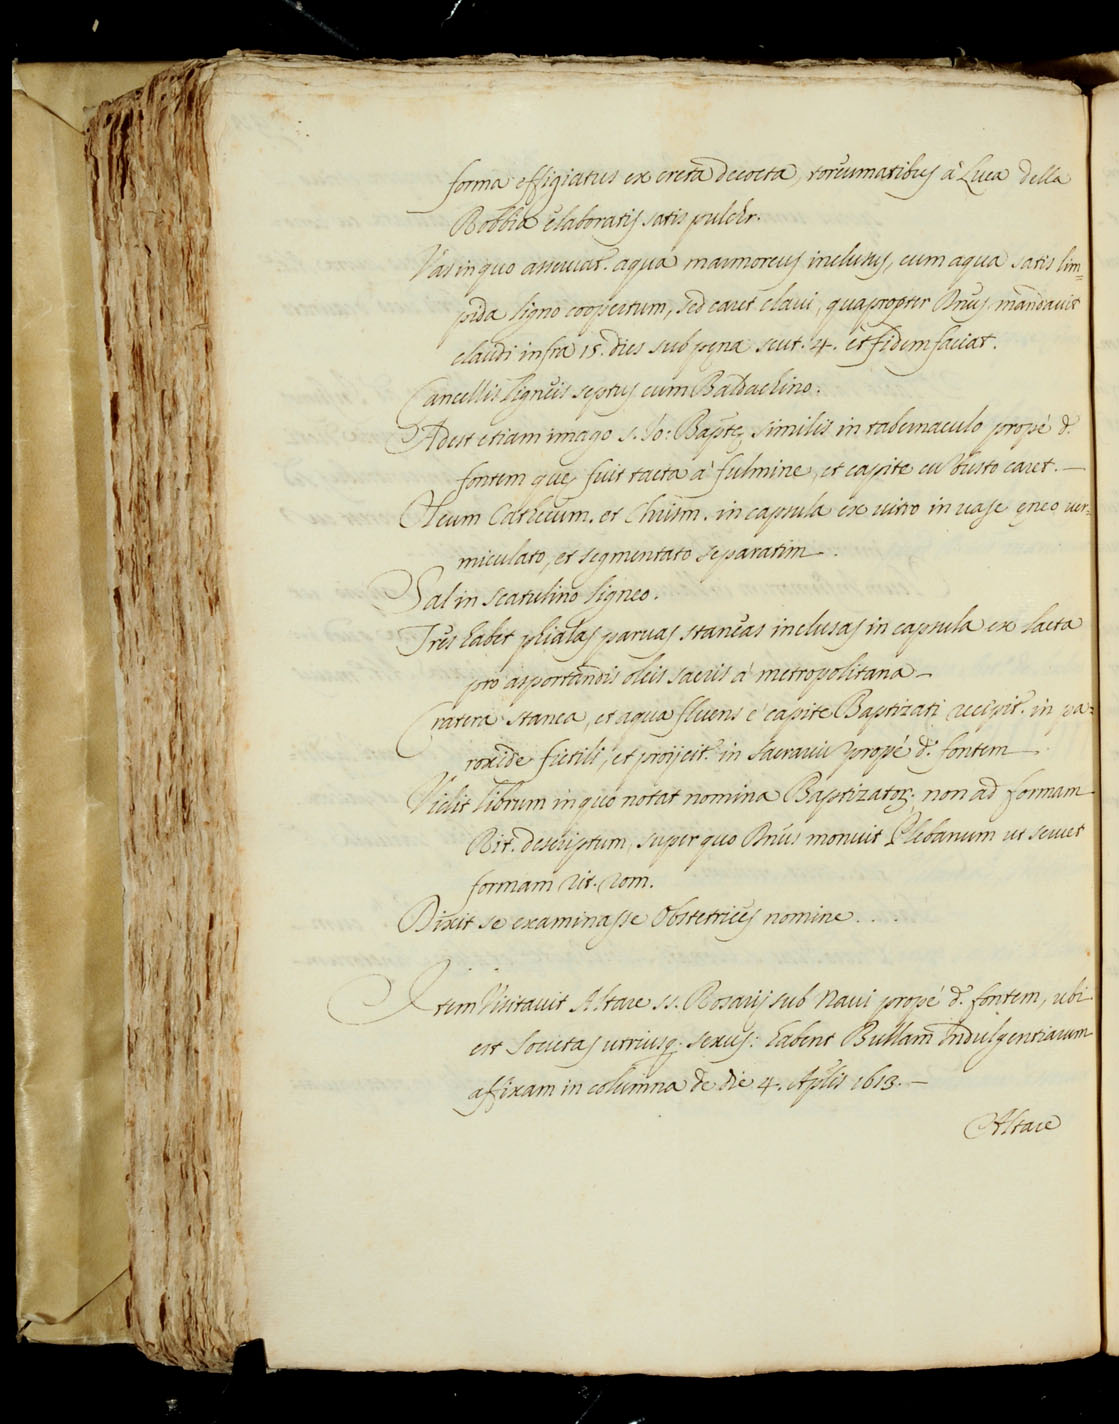 forma effigiatus ex creta decocta, toreumatibus à Luca della
Robbia elaboratis satis pulchr.
Vas in quo asservat. aqua marmoreus inclusus, cum aqua satis lim=
pida ligno coopertum, sed caret clavi, quapropter Dnus. mandavit
claudi infra 15. dies sub pena scut. 4. et fidem faciat.
Cancellis ligneis septus cum Baldachino.
Adest etiam imago s. Io: Bapte similis in tabernaculo propé d.
fontem que fuit tacta à fulmine, et capite cu busto caret. —
Oleum Cathecum. et Chrism. in capsula ex vitro in vase eneo ver=
miculato, et segmentato separatim —.
Sal in scatulino ligneo.
Tres habet phialas parvas staneas inclusas in capsula ex lacta
pro asportandis oleis sacris à metropolitana —
Cratera stanea, et aqua fluens è capite Baptizati recipit. in pa=
roxide fictili, et proijcit. in sacrariu propé d. fontem —.
Vidit librum in quo notat nomina Baptizator. non ad formam
Rit. descriptum, super quo Dnus monuit Plebanum ut servet
formam rit. rom.
Dixit se examinasse Obstetrices nomine . . . .
Item Visitavit Altare ss. Rosarij sub navi propé d. fontem, ubi
est Societas utriusq. sexus: habent Bullam Indulgentiarum
affixam in columna de die 4. Aplis 1613. —
Altare